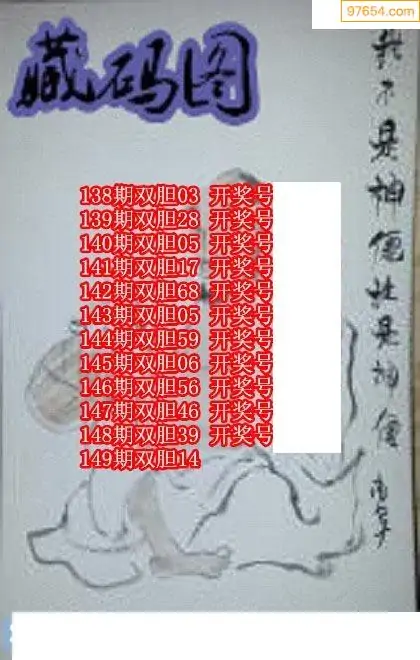 97654.com
藏码图
138期双胆03 开奖号
139期双胆28 开奖号
140期双胆05 开奖号
141期双胆17 开奖号
142期双胆68 开奖号
143期双胆05 开奖号
144期双胆59 开奖号
145期双胆06 开奖号
146期双胆56 开奖号
147期双胆46 开奖号
148期双胆39 开奖号
149期双胆14
我不是神僊谁是神僊